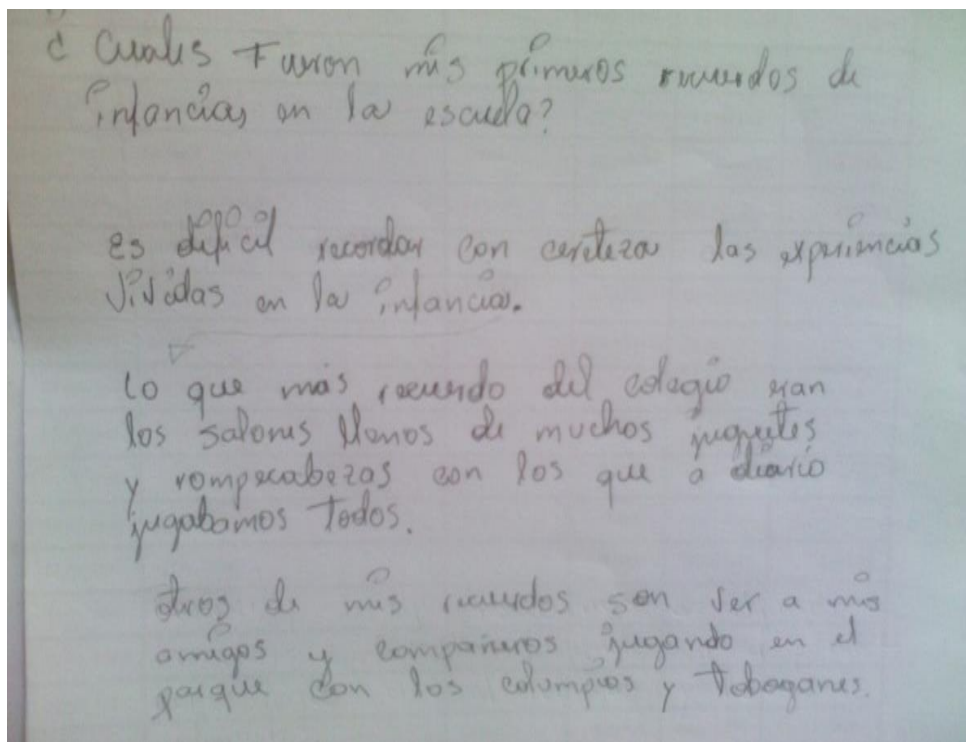 ¿ Cuales Fueron mis primeros recuerdos de
infancia, en la escuela?
es dificil recordar con certeza las experiencias
vividas en la infancia.
lo que más recuerdo del colegio eran
los salones llenos de muchos juguetes
y rompecabezas con los que a diario
jugabamos todos.
otros de mis recuerdos son ver a mis
amigos y compañeros jugando en el
parque con los columpios y toboganes.